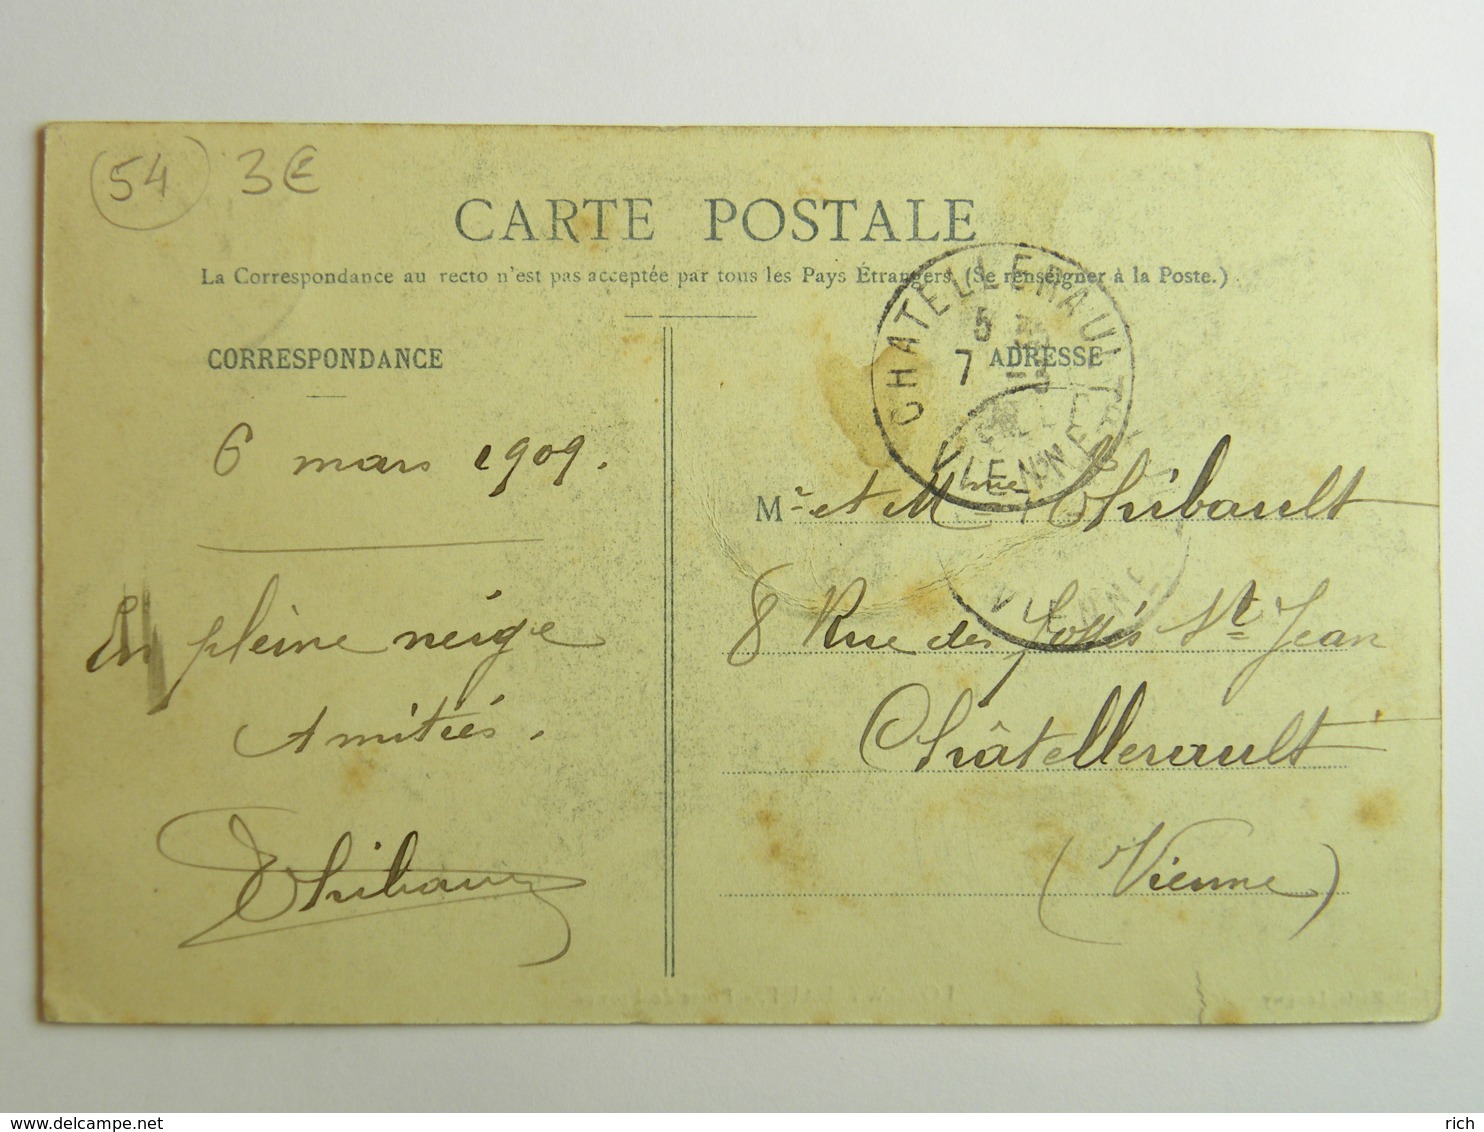 54 3€
CARTE POSTALE
La Correspondance au recto n'est pas acceptée par tous les Pays Étrangers. (Se renseigner à la Poste.)
CORRESPONDANCE
6 mars 1909.
En pleine neige
Amitiés.
Thibault
ADRESSE
CHATELLERAULT
5
7
VIENNE
Mr et Mme Thibault
8 Rue des fossés St Jean
Châtellerault
(Vienne)
VIENNE
www.delcampe.net
rich